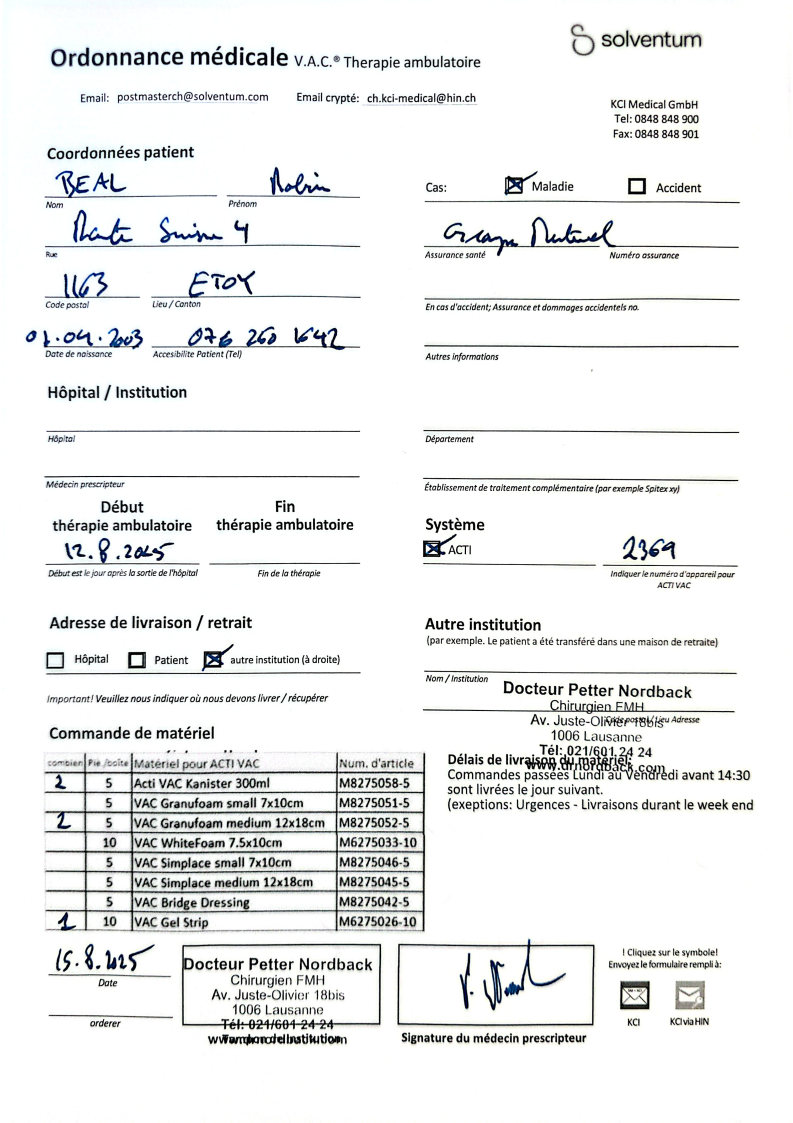 solventum
Ordonnance médicale V.A.C.® Therapie ambulatoire
Email: postmasterch@solventum.com Email crypté: ch.kci-medical@hin.ch
KCI Medical GmbH
Tel: 0848 848 900
Fax: 0848 848 901
Coordonnées patient
BEAL Robin
Nom Prénom
Cas: Maladie Accident
Route Suisse 4
Rue
Groupe Mutuel
Assurance santé Numéro assurance
1163 ETOY
Code postal Lieu / Canton
En cas d'accident; Assurance et dommages accidentels no.
01.04.2003 076 260 1642
Date de naissance Accesibilite Patient (Tel)
Autres informations
Hôpital / Institution
Hôpital
Département
Médecin prescripteur
Établissement de traitement complémentaire (par exemple Spitex xy)
Début
thérapie ambulatoire
Fin
thérapie ambulatoire
12.8.2025
Début est le jour après la sortie de l'hôpital Fin de la thérapie
Système
ACTI 2369
Indiquer le numéro d'appareil pour
ACTI VAC
Adresse de livraison / retrait
Hôpital Patient autre institution (à droite)
Important! Veuillez nous indiquer où nous devons livrer / récupérer
Autre institution
(par exemple. Le patient a été transféré dans une maison de retraite)
Nom / Institution
Docteur Petter Nordback
Chirurgien FMH
Av. Juste-Olivier 18bis
Code postal / Lieu Adresse
1006 Lausanne
Tél: 021/601 24 24
www.drnordback.com
Commande de matériel
combien Pie./boîte Matériel pour ACTI VAC Num. d'article
2 5 Acti VAC Kanister 300ml M8275058-5
5 VAC Granufoam small 7x10cm M8275051-5
2 5 VAC Granufoam medium 12x18cm M8275052-5
10 VAC WhiteFoam 7.5x10cm M6275033-10
5 VAC Simplace small 7x10cm M8275046-5
5 VAC Simplace medium 12x18cm M8275045-5
5 VAC Bridge Dressing M8275042-5
1 10 VAC Gel Strip M6275026-10
Délais de livraison du matériel:
Commandes passées Lundi au Vendredi avant 14:30
sont livrées le jour suivant.
(exeptions: Urgences - Livraisons durant le week end
15.8.2025
Date
orderer
Docteur Petter Nordback
Chirurgien FMH
Av. Juste-Olivier 18bis
1006 Lausanne
Tél: 021/601 24 24
Signature du médecin prescripteur
! Cliquez sur le symbole!
Envoyez le formulaire rempli à:
KCI KCI via HIN